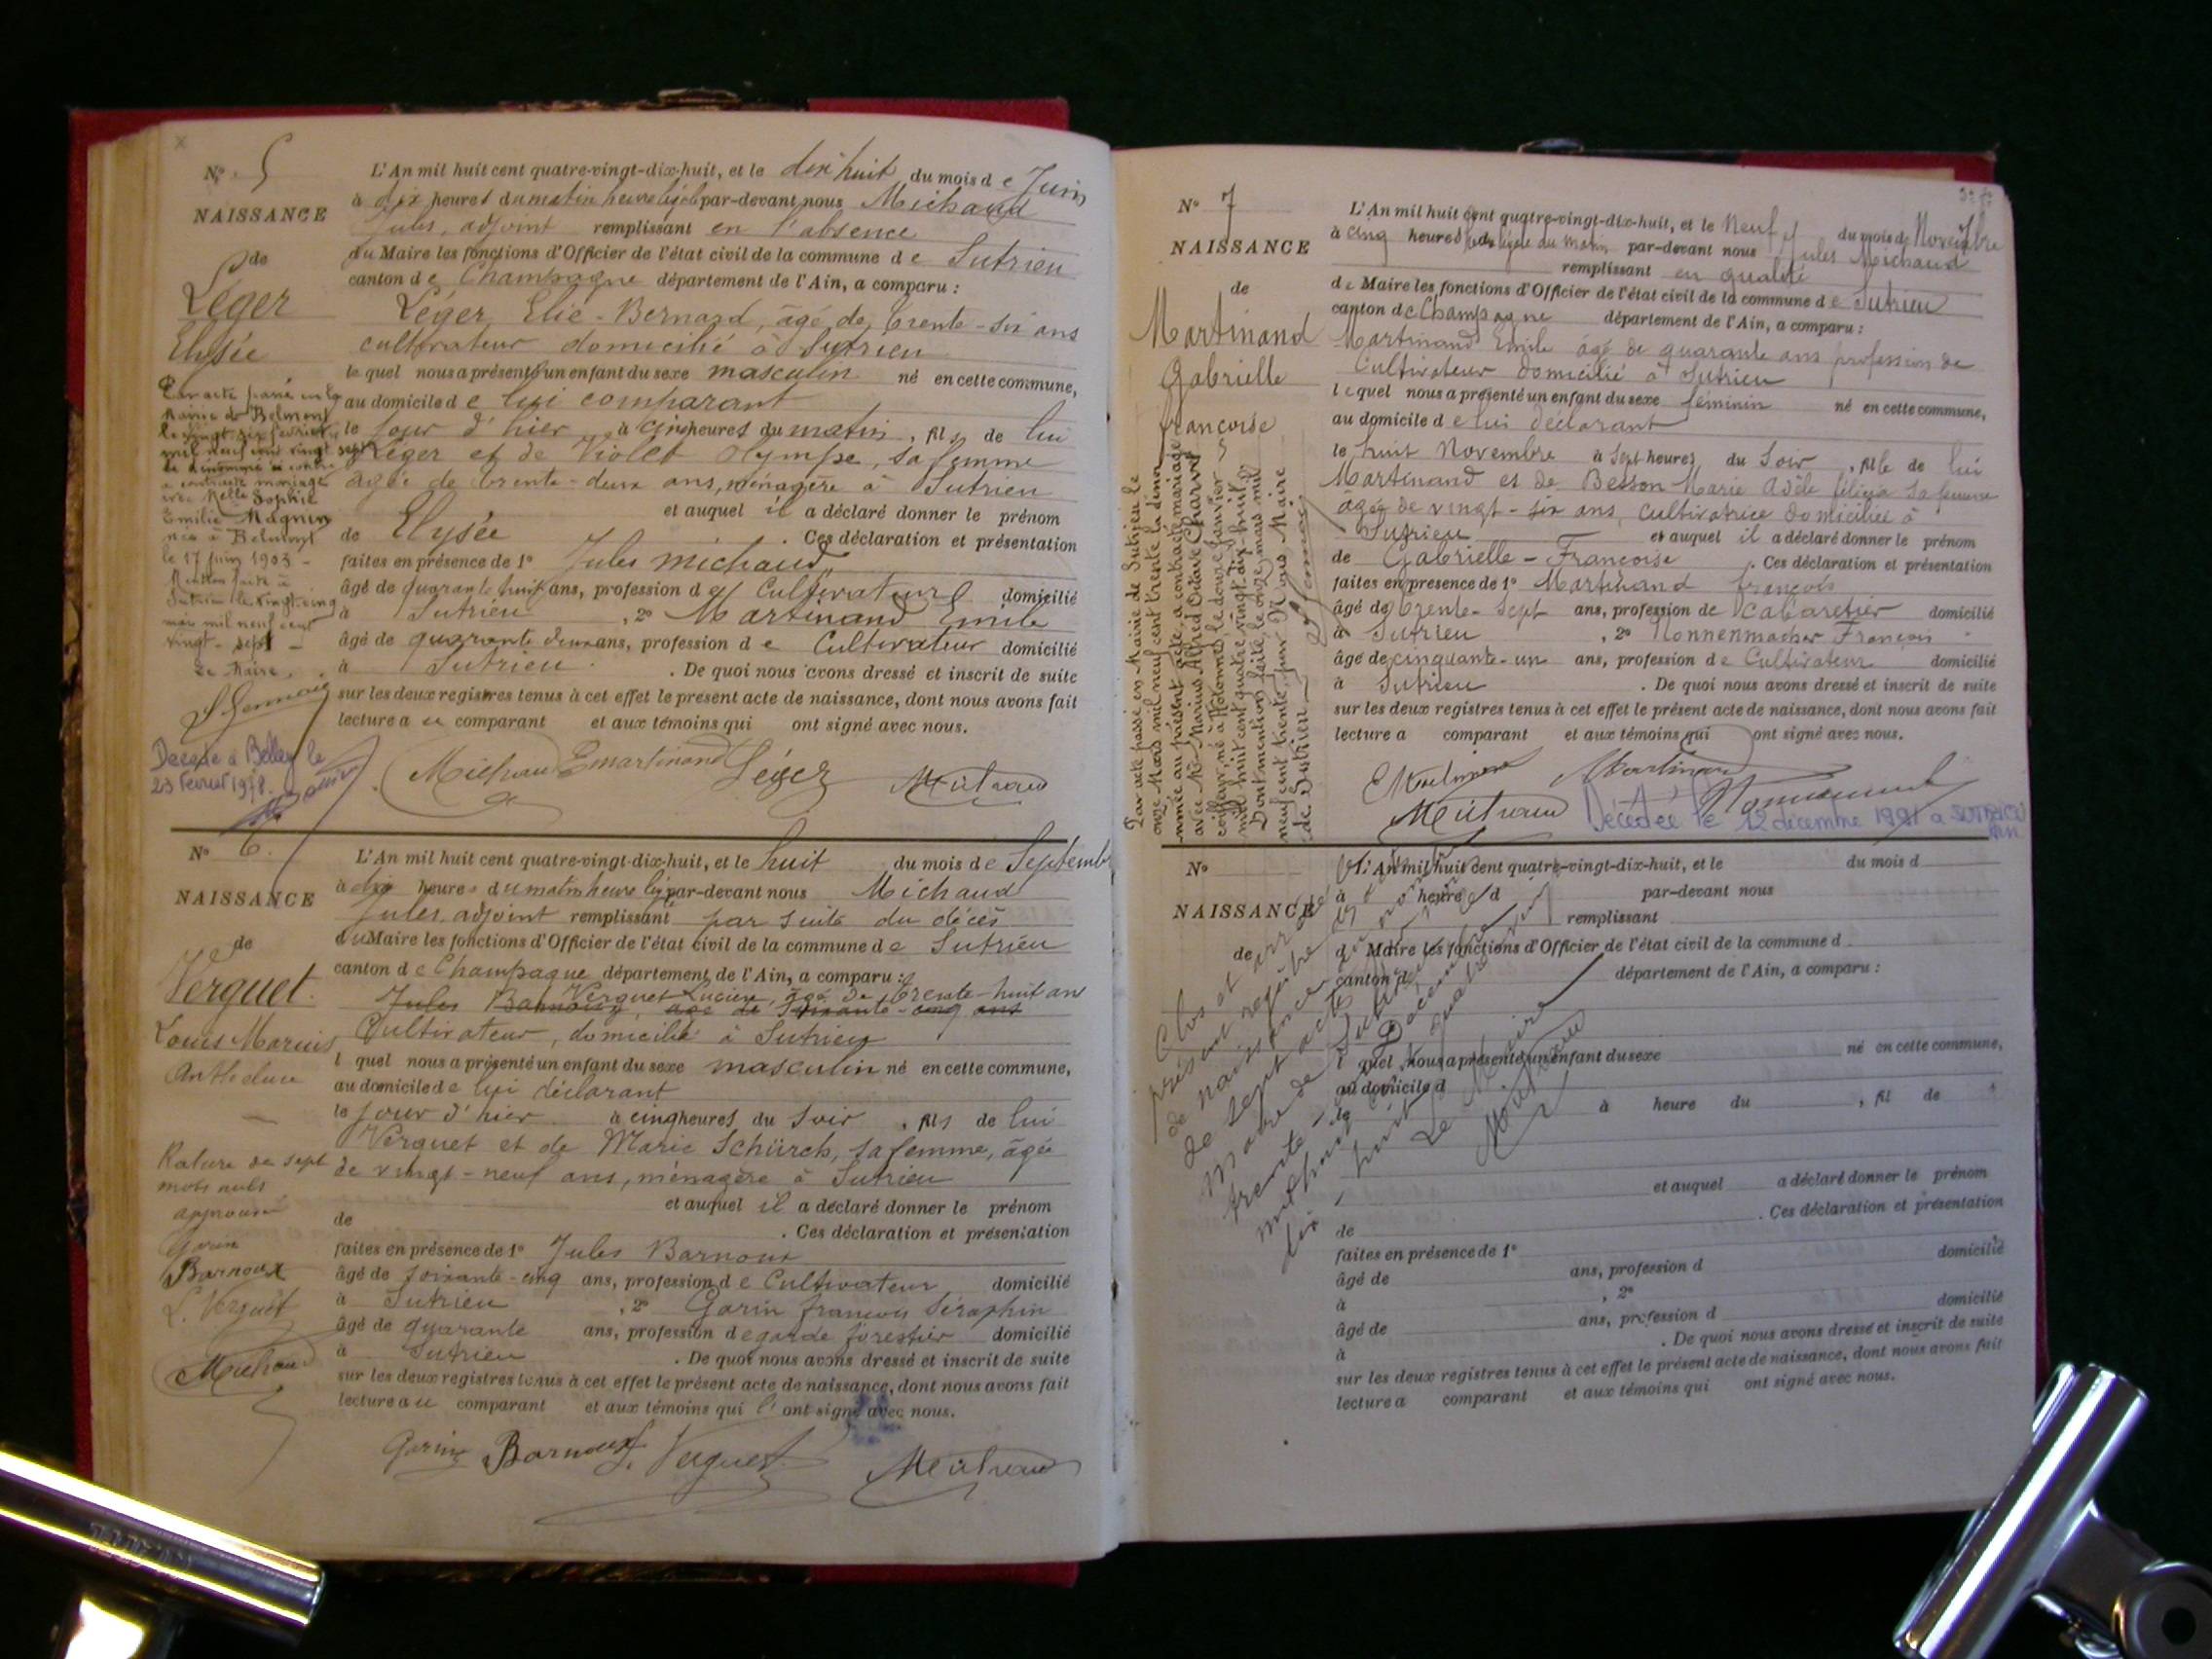 N° 5
NAISSANCE
de
Léger
Elysée
Par acte passé en la
Mairie de Belmont
le vingt six février
mil neuf cent vingt sept
le dénommé ci contre
a contracté mariage
avec Melle Sophie
Emilie Magnin
née à Belmont
le 17 Juin 1903 -
Mention faite à
Sutrieu le vingt cinq
mars mil neuf cent
vingt-sept -
Le Maire.
Décédé à Belley le
23 février 1978.
L'An mil huit cent quatre-vingt-dix-huit, et le dix huit du mois de Juin
à dix heures du matin heure légale par-devant nous Michaud
Jules, adjoint remplissant en l'absence
du Maire les fonctions d'Officier de l'état civil de la commune de Sutrieu
canton de Champagne département de l'Ain, a comparu :
Léger, Elie-Bernard, âgé de trente-six ans
cultivateur domicilié à Sutrieu
lequel nous a présenté un enfant du sexe masculin né en cette commune,
au domicile de lui comparant
le jour d'hier à cinq heures du matin, fils de lui
Léger et de Violet Olympe, sa femme
âgée de trente-deux ans, ménagère à Sutrieu
et auquel il a déclaré donner le prénom
de Elysée . Ces déclaration et présentation
faites en présence de 1° Jules Michaud
âgé de quarante huit ans, profession de Cultivateur domicilié
à Sutrieu , 2° Martinand Emile
âgé de quarante deux ans, profession de Cultivateur domicilié
à Sutrieu . De quoi nous avons dressé et inscrit de suite
sur les deux registres tenus à cet effet le présent acte de naissance, dont nous avons fait
lecture au comparant et aux témoins qui ont signé avec nous.
Michaud E martinand Léger Michaud
N° 6.
NAISSANCE
de
Verguet
Louis Marius
Anthelme
Rature de sept
mots nuls
approuvé
Gorin
Barnoux
L. Verguet
Michaud
L'An mil huit cent quatre-vingt-dix-huit, et le huit du mois de Septembre
à dix heures du matin heure légale par-devant nous Michaud
Jules, adjoint remplissant par suite du décès
du Maire les fonctions d'Officier de l'état civil de la commune de Sutrieu
canton de Champagne département de l'Ain, a comparu :
Verguet Lucien, âgé de trente-huit ans
Jules Barnoux, âgé de soixante-cinq ans
Cultivateur, domicilié à Sutrieu
l quel nous a présenté un enfant du sexe masculin né en cette commune,
au domicile de lui déclarant
le jour d'hier à cinq heures du soir , fils de lui
Verguet et de Marie Schürch, sa femme, âgée
de vingt-neuf ans, ménagère à Sutrieu
et auquel il a déclaré donner le prénom
de . Ces déclaration et présentation
faites en présence de 1° Jules Barnoux
âgé de soixante-cinq ans, profession de Cultivateur domicilié
à Sutrieu , 2° Gorin françois Séraphin
âgé de quarante ans, profession de garde forestier domicilié
à Sutrieu . De quoi nous avons dressé et inscrit de suite
sur les deux registres tenus à cet effet le présent acte de naissance, dont nous avons fait
lecture au comparant et aux témoins qui ont signé avec nous.
Gorin Barnoux L. Verguet Michaud
N° 7
NAISSANCE
de
Martinand
Gabrielle
françoise
Par acte passé en Mairie de Sutrieu le
onze Mars mil neuf cent trente la dénommée
au présent acte a contracté mariage
avec Mr Marius Alfred Octave Charvet
coiffeur né à Hotonnes, le douze Janvier
mil huit cent quatre vingt dix-huit.
Dont mention faite le onze mars mil
neuf cent trente, par Nous Maire
de Sutrieu
L'An mil huit cent quatre-vingt-dix-huit, et le Neuf du mois de Novembre
à cinq heures légale du matin par-devant nous Jules Michaud
remplissant en qualité
de Maire les fonctions d'Officier de l'état civil de la commune de Sutrieu
canton de Champagne département de l'Ain, a comparu :
Martinand Emile âgé de quarante ans profession de
Cultivateur domicilié à Sutrieu
lequel nous a présenté un enfant du sexe féminin né en cette commune,
au domicile de lui déclarant
le huit Novembre à Sept heures du Soir , fille de lui
Martinand et de Besson Marie Adèle félicia sa femme
âgée de vingt-six ans, cultivatrice domiciliée à
Sutrieu et auquel il a déclaré donner le prénom
de Gabrielle-Françoise . Ces déclaration et présentation
faites en présence de 1° Martinand françois
âgé de trente-sept ans, profession de Cabaretier domicilié
à Sutrieu , 2° Nonnenmacher François
âgé de cinquante-un ans, profession de Cultivateur domicilié
à Sutrieu . De quoi nous avons dressé et inscrit de suite
sur les deux registres tenus à cet effet le présent acte de naissance, dont nous avons fait
lecture a comparant et aux témoins qui ont signé avec nous.
Martinand
Michaud
Décédée le 12 décembre 1981 à SUTRIEU
Ain
N°
NAISSANCE
de
L'An mil huit cent quatre-vingt-dix-huit, et le du mois d
à heure d par-devant nous
remplissant
d Maire les fonctions d'Officier de l'état civil de la commune d
canton d département de l'Ain, a comparu :
l quel nous a présenté un enfant du sexe né en cette commune,
au domicile d
le à heure du , fil de
et auquel a déclaré donner le prénom
de . Ces déclaration et présentation
faites en présence de 1° domicilié
âgé de ans, profession d
à , 2° domicilié
âgé de ans, profession d
à . De quoi nous avons dressé et inscrit de suite
sur les deux registres tenus à cet effet le présent acte de naissance, dont nous avons fait
lecture a comparant et aux témoins qui ont signé avec nous.
Clos et arrêté
présent registre
de naissance
de sept actes
Maire de Sutrieu
trente Décembre
mil huit cent quatre
dix - huit
Le Maire
Michaud